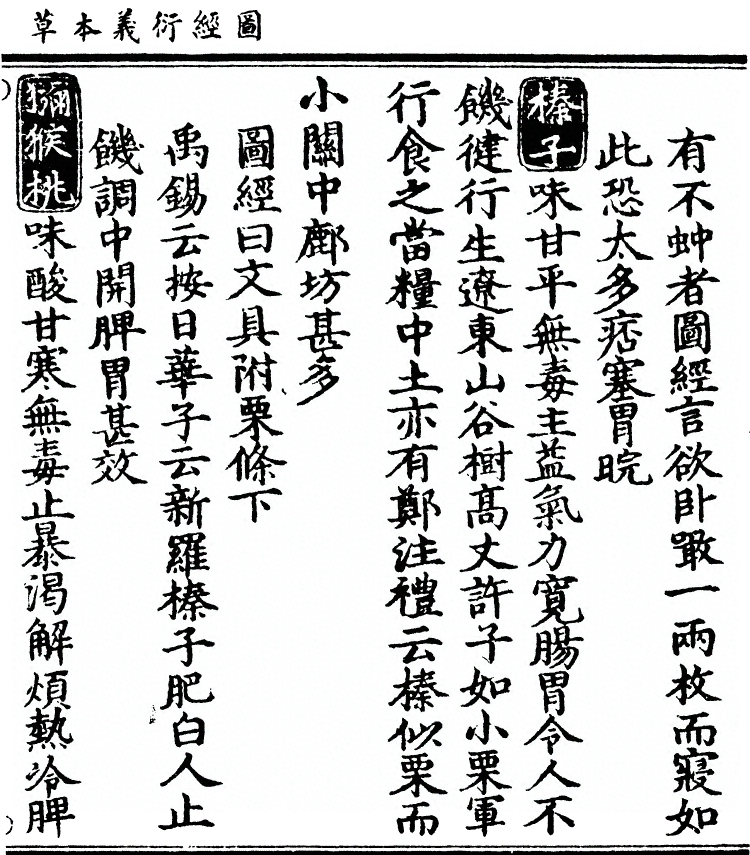 圖經衍義本草
有不蚛者圖經言欲卧㗖一兩枚而寢如
此恐太多痞塞胃脘
榛子味甘平無毒主益氣力寬腸胃令人不
饑健行生遼東山谷樹髙丈許子如小栗軍
行食之當糧中土亦有鄭注禮云榛似栗而
小關中鄜坊甚多
圖經曰文具附栗條下
禹錫云按日華子云新羅榛子肥白人止
饑調中開脾胃甚效
獼猴桃味酸甘寒無毒止暴渴解煩熱冷脾